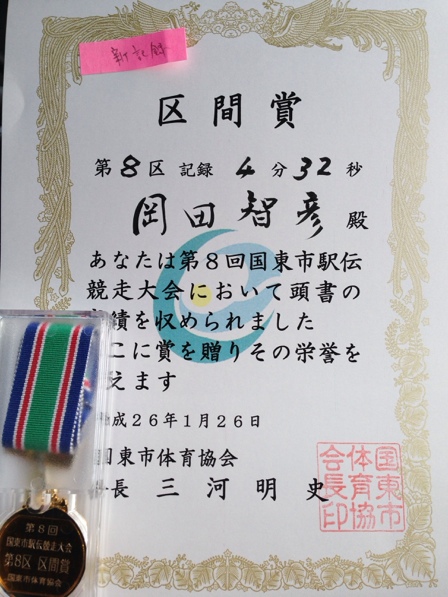 新記録
区間賞
第8区 記録 4分32秒
岡田智彦 殿
あなたは第8回国東市駅伝
競走大会において頭書の
績を収められました
こに賞を贈りその栄誉を
えます
成26年1月26日
国東市体育協会
長 三河明史
国東市
体育協
会長印
第8回
国東市駅伝競走大会
第8区 区間賞
国東市体育協会